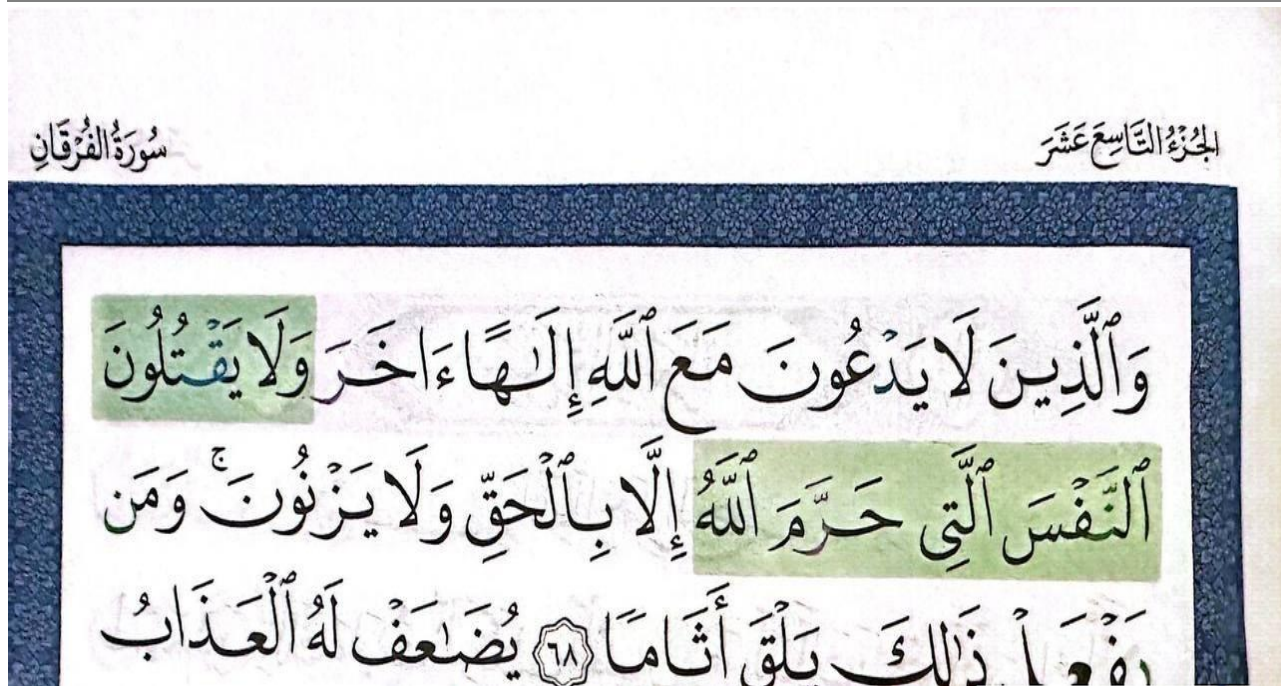 الجُزْءُ التَّاسِعَ عَشَرَ
سُورَةُ الفُرْقَانِ
وَٱلَّذِينَ لَا يَدْعُونَ مَعَ ٱللَّهِ إِلَٰهًا ءَاخَرَ وَلَا يَقْتُلُونَ
ٱلنَّفْسَ ٱلَّتِى حَرَّمَ ٱللَّهُ إِلَّا بِٱلْحَقِّ وَلَا يَزْنُونَ ۚ وَمَن
يَفْعَلْ ذَٰلِكَ يَلْقَ أَثَامًا ٦٨ يُضَٰعَفْ لَهُ ٱلْعَذَابُ